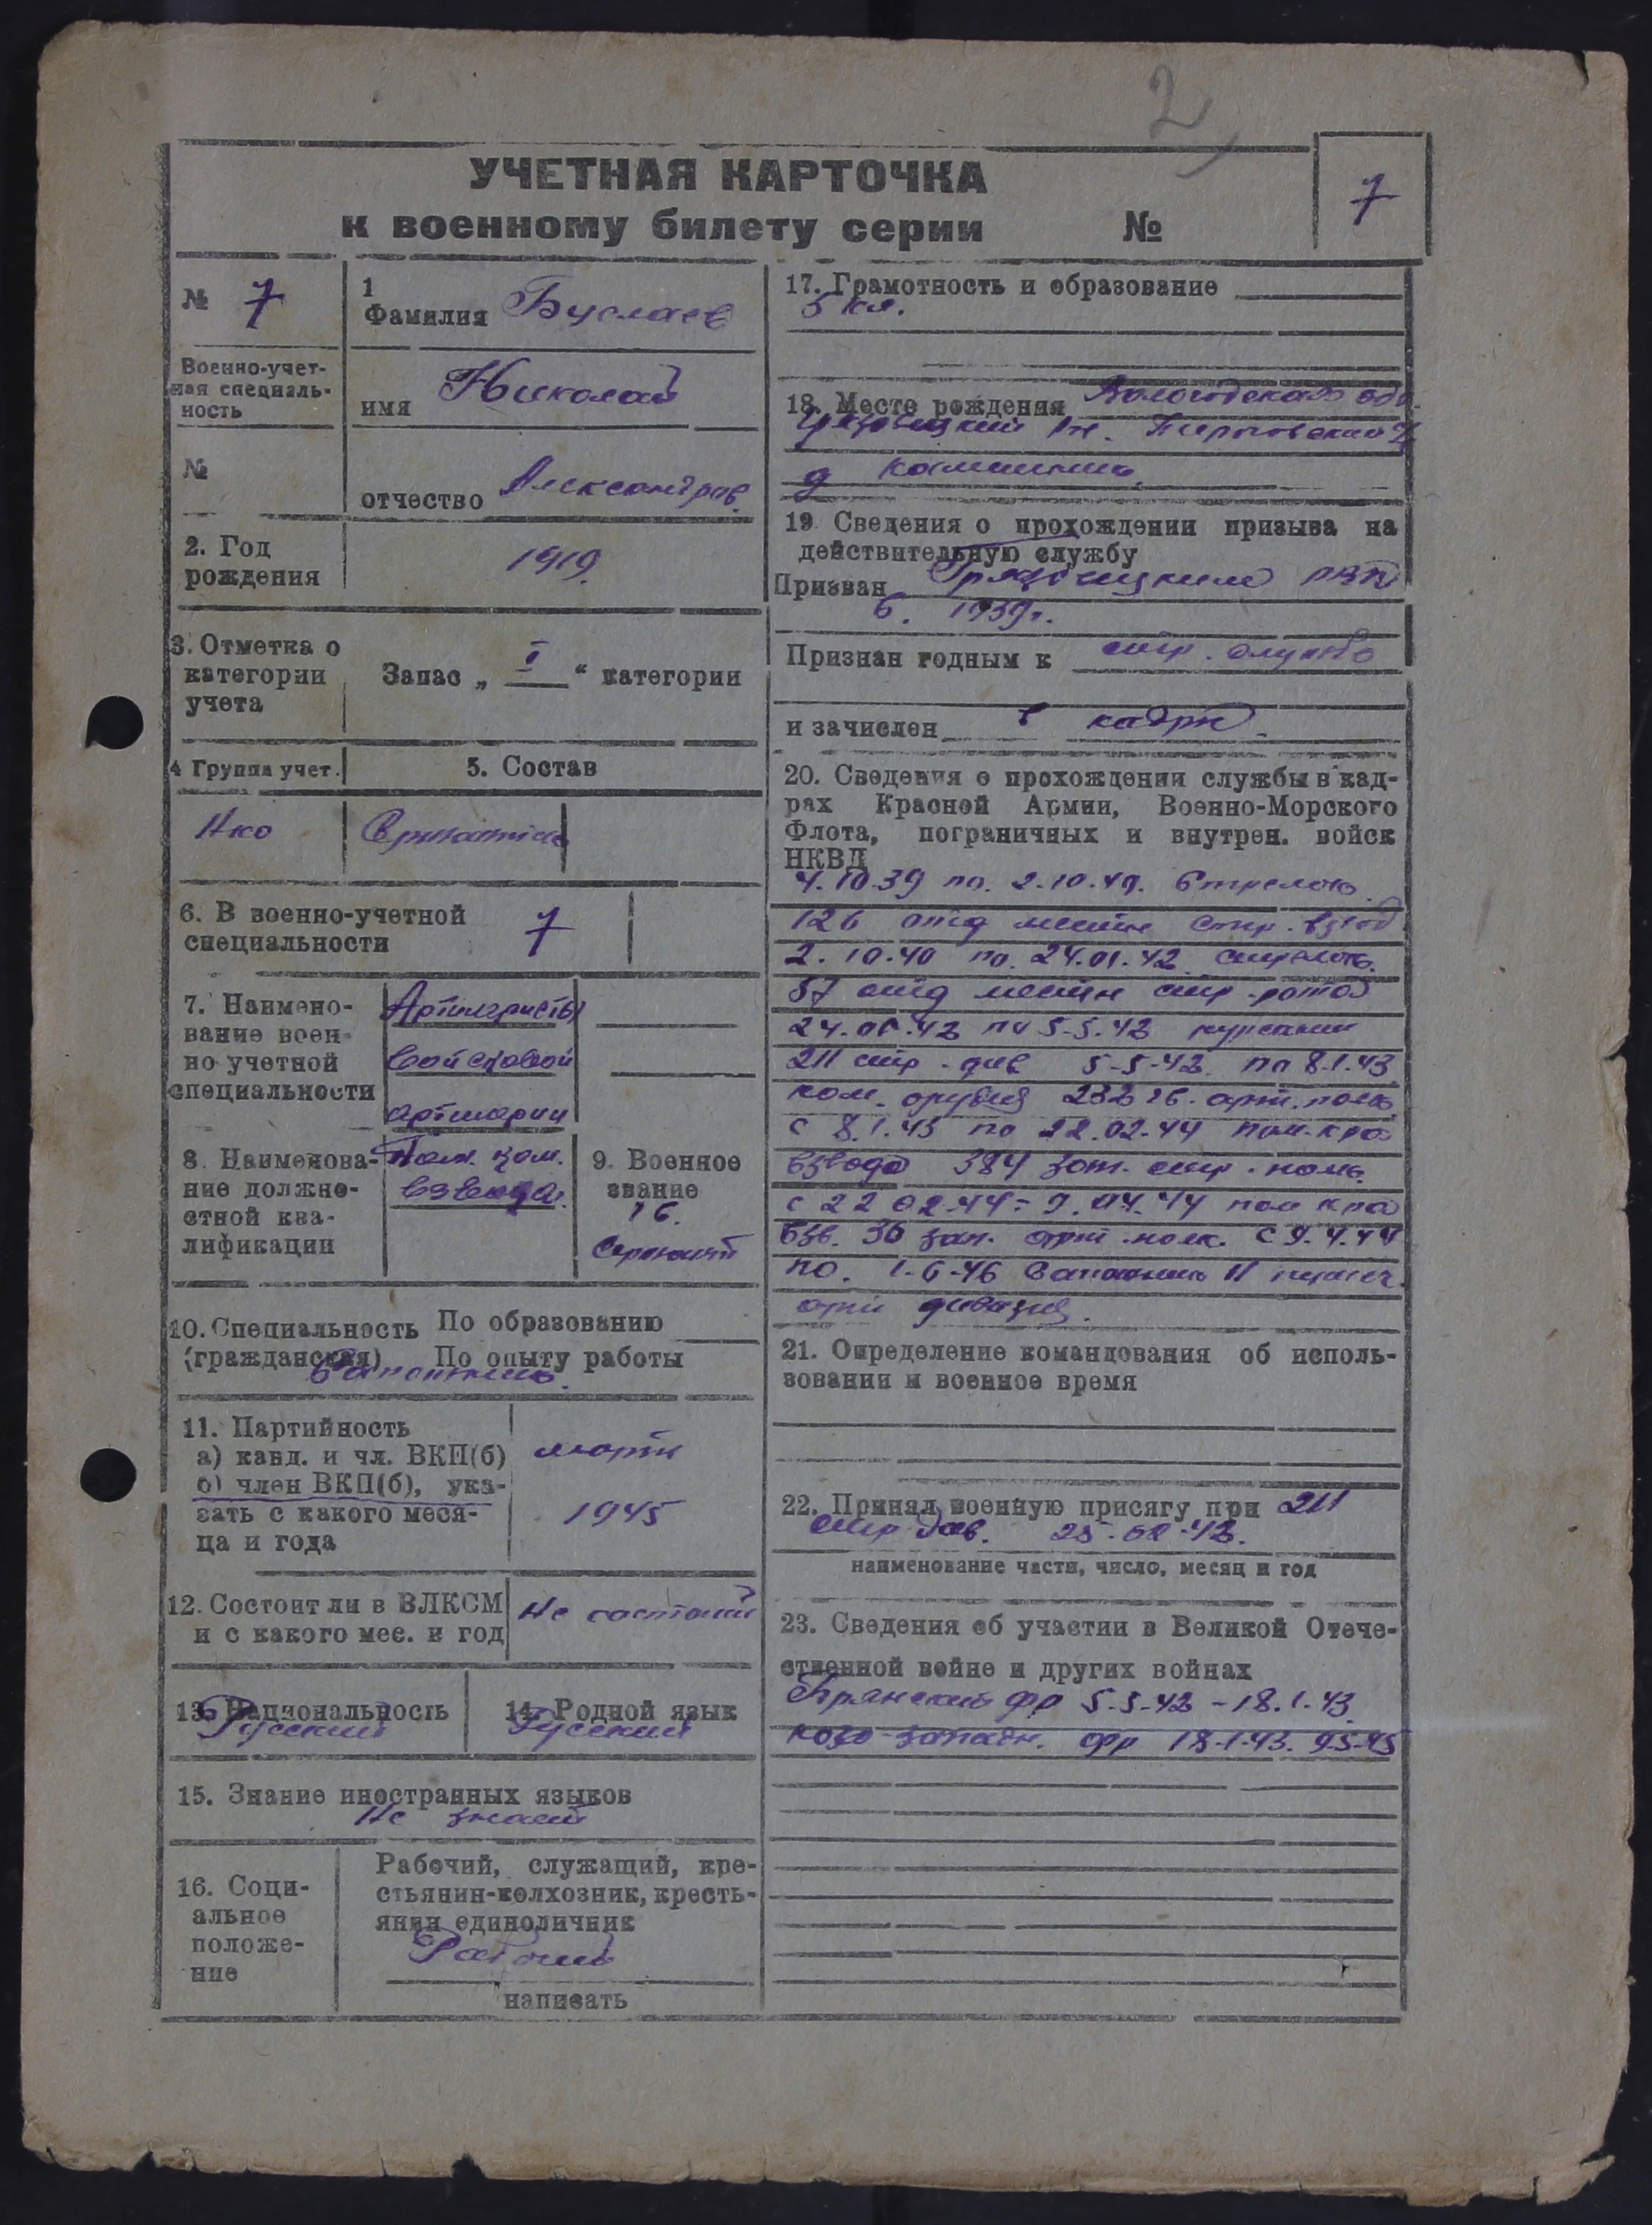 2
УЧЕТНАЯ КАРТОЧКА
к военному билету серии №
7
№ 7
1
Фамилия Буслаев
Военно-учет-
ная специаль-
ность
имя Николай
№
отчество Александров.
2. Год
рождения
1919.
3. Отметка о
категории
учета
Запас „ I “ категории
4 Группа учет.
5. Состав
Нко
6. В военно-учетной
специальности
7
7. Наимено-
вание воен-
но учетной
специальности
Артилеристы
войсковой
артилерии
8. Наименова-
ние должно-
стной ква-
лификации
Пом. ком.
взвода.
9. Военное
звание
гв.
Сержант
10. Специальность По образованию
(гражданская) По опыту работы
Сапожник.
11. Партийность
а) канд. и чл. ВКП(б)
б) член ВКП(б), ука-
зать с какого меся-
ца и года
марта
1945
12. Состоит ли в ВЛКСМ
и с какого мес. и год
Не состоит
13. Национальность
Русский
14. Родной язык
Русский
15. Знание иностранных языков
Не знает
16. Соци-
альное
положе-
ние
Рабочий, служащий, кре-
стьянин-колхозник, кресть-
янин единоличник
Рабочий
написать
17. Грамотность и образование
5 кл.
18. Месте рождения Вологодская обл.
Грязовецкий рн.
д
19 Сведения о прохождении призыва на
действительную службу
Призван Грязовецким РВК
в. 1939г.
Признан годным к стр. службе
и зачислен в кадры.
20. Сведения о прохождении службы в кад-
рах Красной Армии, Военно-Морского
Флота, пограничных и внутрен. войск
НКВД
4.10.39 по. 2.10.40. Стрелок
126 отд местн стр. взвод
2.10.40 по. 24.01.42 стрелок.
57 отд местн стр. рота
24.01.42 по 5-5.42 курсант
211 стр. див 5-5-42 по 8.1.43
ком. орудия 232 гв. арт. полк
с 8.1.43 по 22.02.44 пом. к-ра
взвода 384 зап. стр. полк.
с 22 02.44 - 9.04.44 пом к-ра
взв. 30 зап. арт. полк. С 9.4.44
по. 1-6-46 Сапожник 11
арт дивизия.
21. Определение командования об исполь-
зовании и военное время
22. Принял военную присягу при 211
стр. див. 25-02-42.
наименование части, число, месяц и год
23. Сведения об участии в Великой Отече-
ственной войне и других войнах
Брянский фр 5-5-42 - 18.1.43
юго-западн. фр 18-1-43. 9.5-45